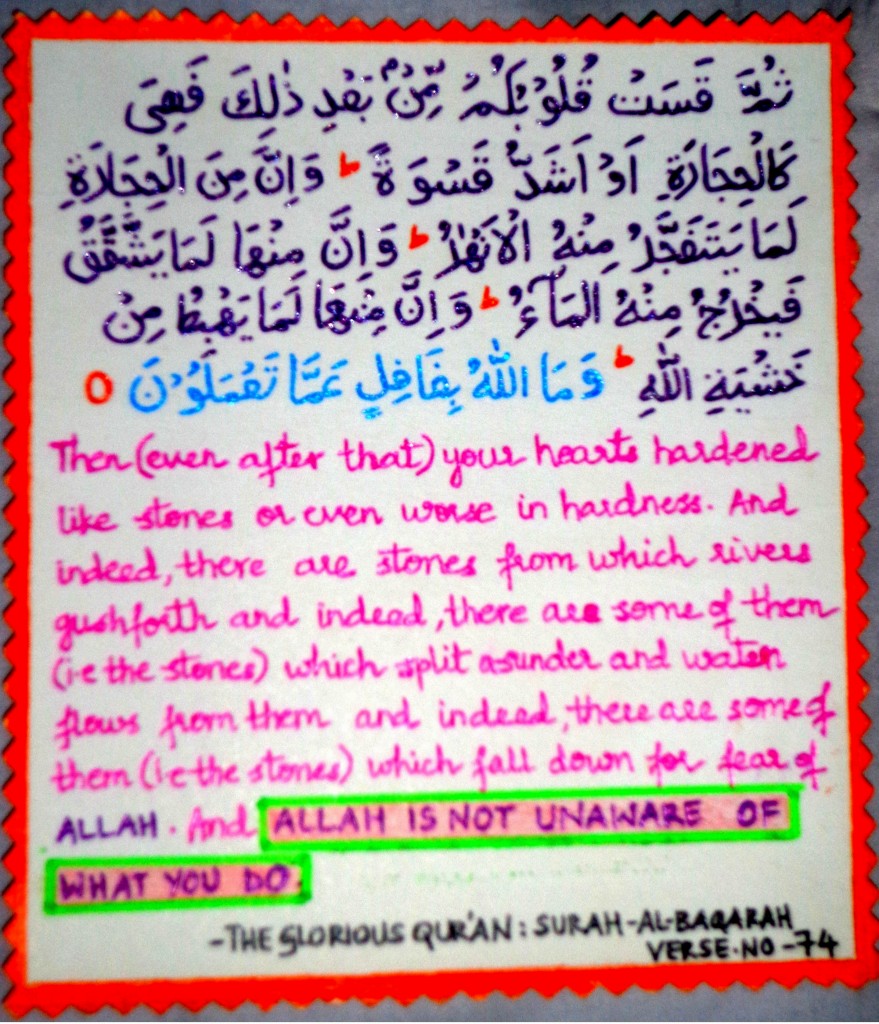 ثُمَّ قَسَتْ قُلُوْبُكُمْ مِّنْۢ بَعْدِ ذٰلِكَ فَهِیَ
كَالْحِجَارَةِ اَوْ اَشَدُّ قَسْوَةً ؕ وَاِنَّ مِنَ الْحِجَارَةِ
لَمَا یَتَفَجَّرُ مِنْهُ الْاَنْهٰرُ ؕ وَاِنَّ مِنْهَا لَمَا یَشَّقَّقُ
فَیَخْرُجُ مِنْهُ الْمَآءُ ؕ وَاِنَّ مِنْهَا لَمَا یَهْبِطُ مِنْ
خَشْیَةِ اللّٰهِ ؕ وَمَا اللّٰهُ بِغَافِلٍ عَمَّا تَعْمَلُوْنَ ○
Then (even after that) your hearts hardened
like stones or even worse in hardness. And
indeed, there are stones from which rivers
gush forth and indeed, there are some of them
(i.e the stones) which split asunder and water
flows from them and indeed, there are some of
them (i.e the stones) which fall down for fear of
ALLAH. And ALLAH IS NOT UNAWARE OF
WHAT YOU DO.
-THE GLORIOUS QUR'AN: SURAH-AL-BAQARAH
VERSE.NO-74